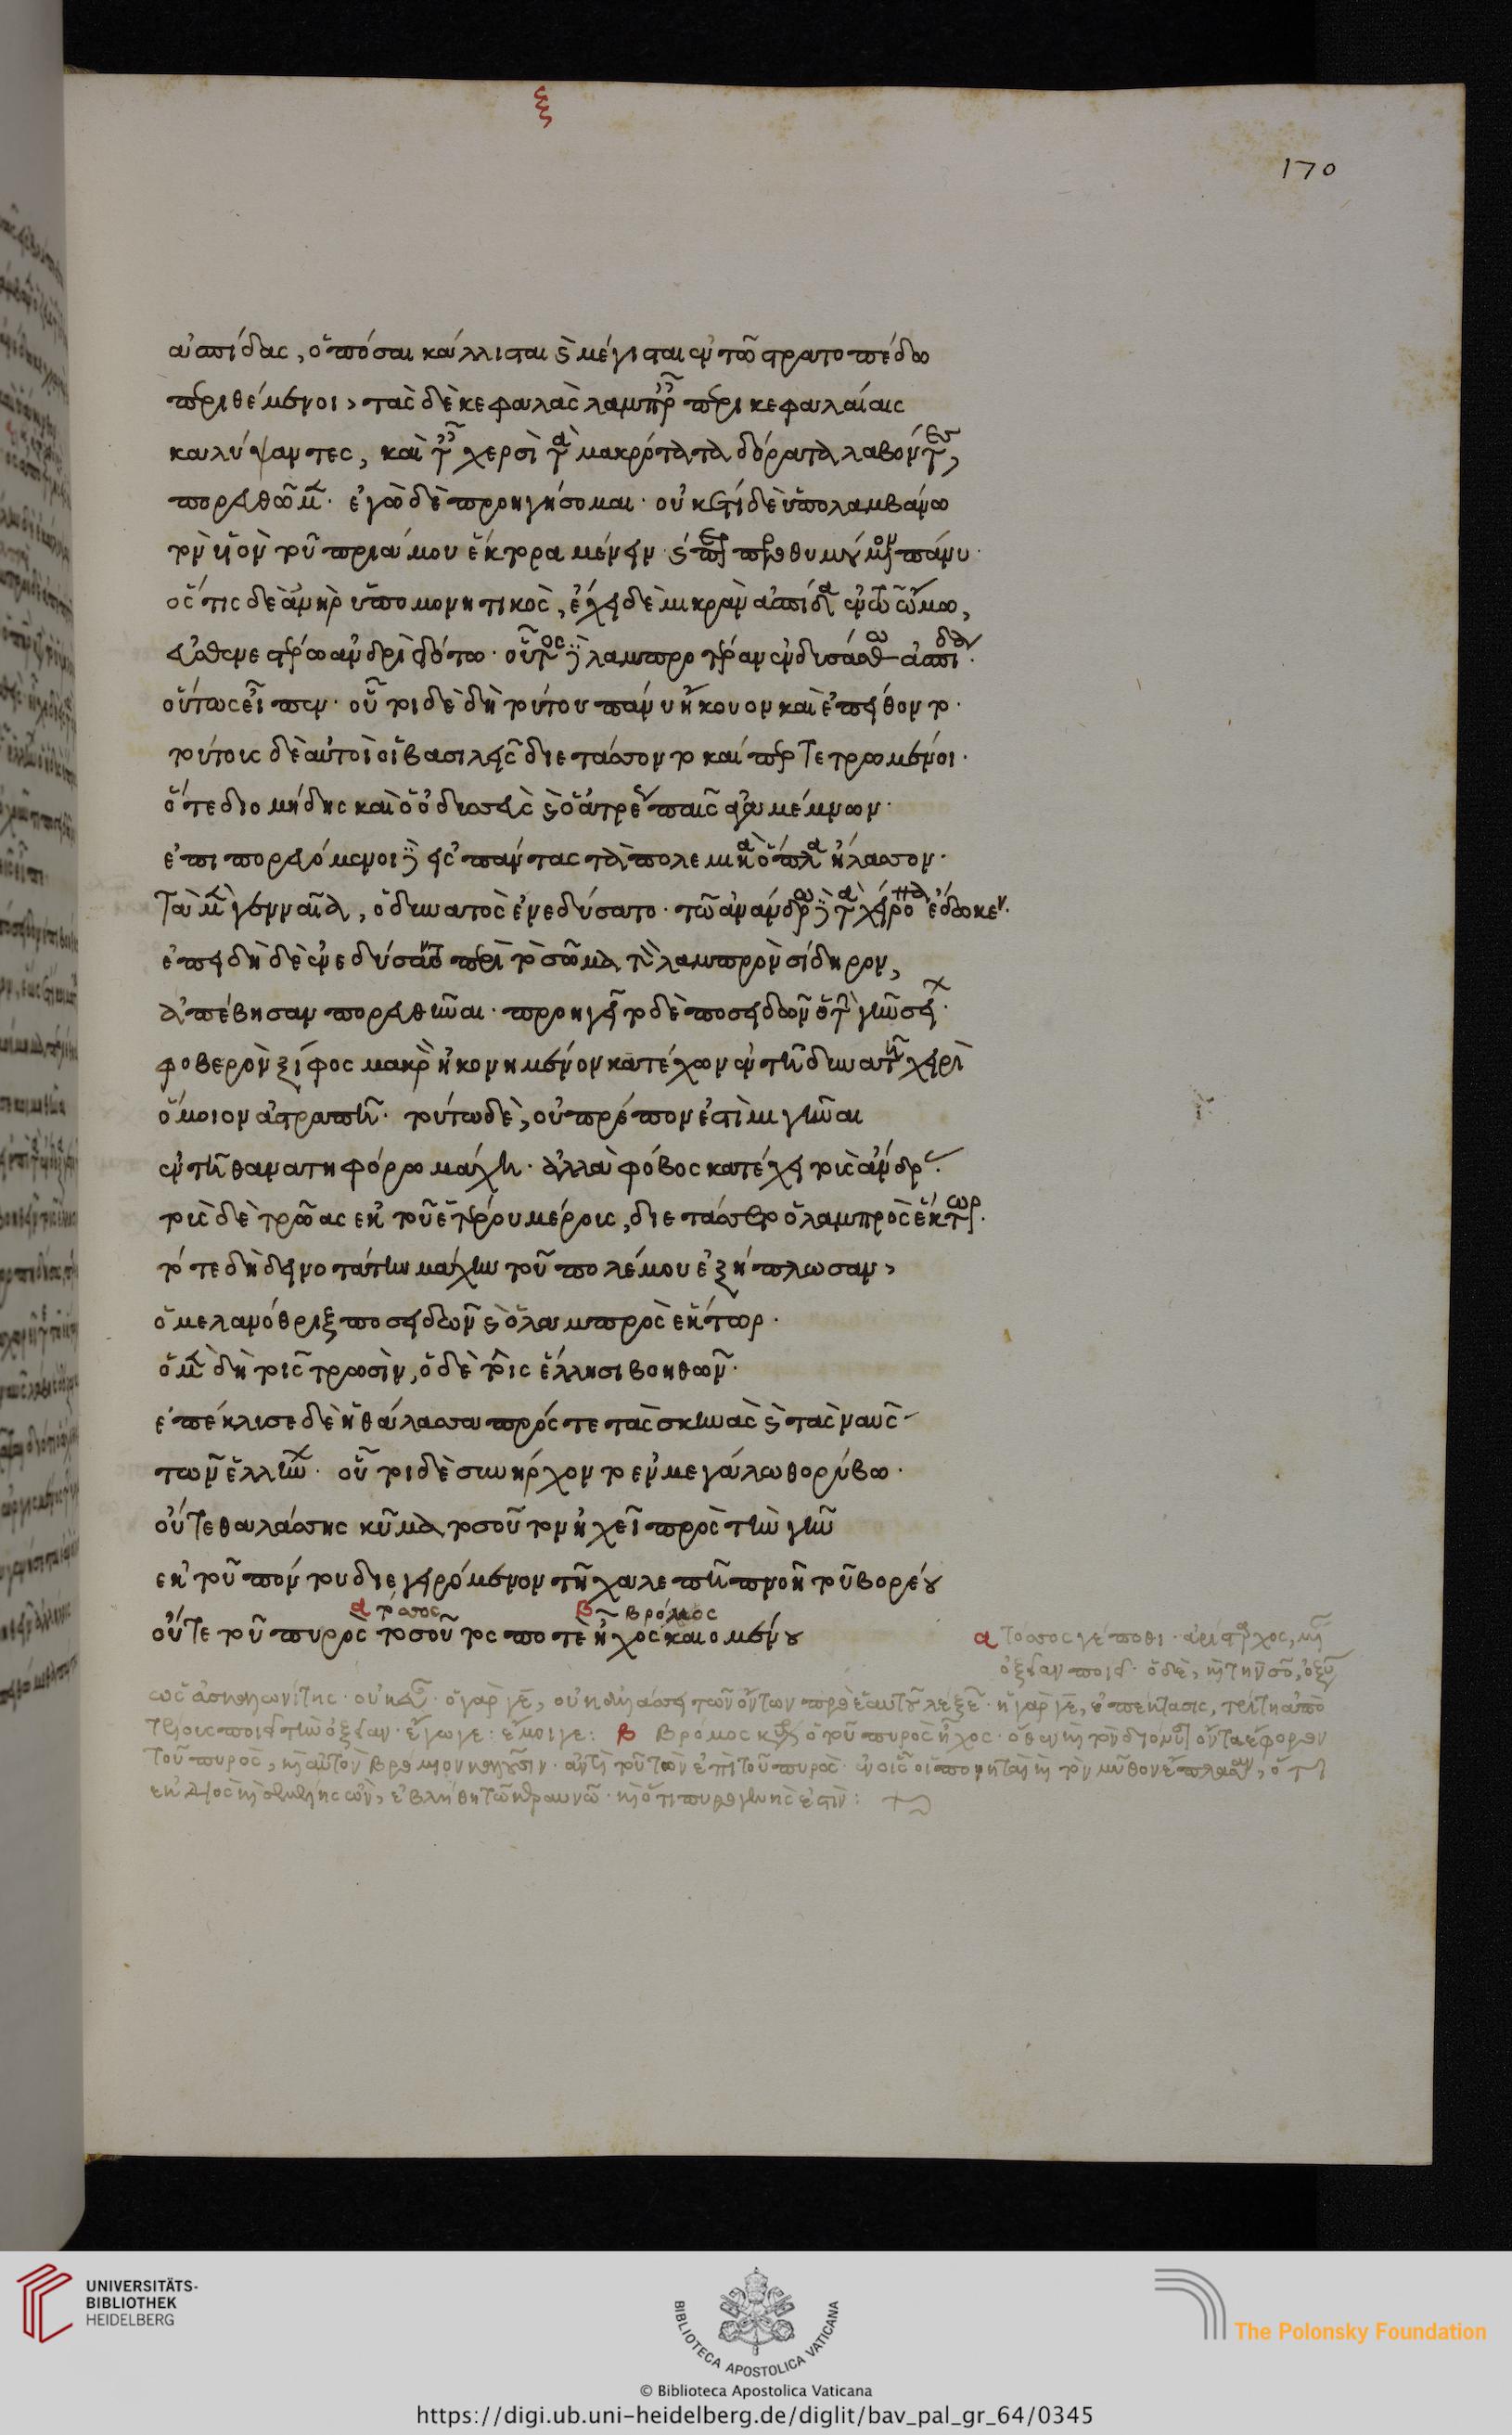 ξ
170
ἀσπίδας, ὁπόσαι κάλλισται καὶ μέγισται ἐν τῷ στρατοπέδῳ
περιθέμενοι, τὰς δὲ κεφαλὰς λαμπραῖς περικεφαλαίαις
καλύψαντες, καὶ ταῖς χερσὶ τὰ μακρότατα δόρατα λαβόντες,
πορευθῶμεν. ἐγὼ δὲ προηγήσομαι. οὐκέτι δὲ ὑπολαμβάνω
τὸν υἱὸν τοῦ πριάμου ἕκτορα μένειν. καίπερ προθυμούμενον πάνυ.
ὅς τις δὲ ἀνὴρ ὑπομονητικὸς, ἔχει δὲ μικρὰν ἀσπίδα ἐν τῷ ὤμῳ,
χείρονι ἀνδρὶ δότω. οὗτος δὲ λαμπροτέραν ἐνδυσάσθω ἀσπίδα.
οὕτως εἶπεν. οὗτοι δὲ δὴ τούτου πάνυ ἤκουον καὶ ἐπείθοντο.
τούτοις δὲ αὐτοὶ οἱ βασιλεῖς διετάσσοντο καίπερ τετρωμένοι.
ὅ τε διομήδης καὶ ὁ ὀδυσσεὺς καὶ ὁ ἀτρέως παῖς ἀγαμέμνων.
ἐπιπορευόμενοι δὲ εἰς πάντας τὰ πολεμικὰ ὅπλα ἤλασσον.
τὰ μὲν γενναῖα, ὁ δυνατὸς ἐνεδύσατο. τῷ ἀνάνδρῳ δὲ τὰ χείρονα ἔδωκεν.
ἐπειδὴ δὲ ἐνεδύσαντο περὶ τὸ σῶμα τὸν λαμπρὸν σίδηρον,
ἀπέβησαν πορευθῆναι. προηγεῖτο δὲ ποσειδῶν ὁ τὴν γῆν σείων.
φοβερὸν ξίφος μακρὸν ἠκονημένον κατέχων ἐν τῇ δυνατῇ χειρὶ
ὅμοιον ἀστραπῇ. τούτῳ δὲ, οὐ πρέπον ἐστὶ μιγῆναι
ἐν τῇ θανατηφόρῳ μάχῃ. ἀλλὰ φόβος κατέχει τοὺς ἄνδρας.
τοὺς δὲ τρῶας ἐκ τοῦ ἑτέρου μέρους, διετάσσετο ὁ λαμπρὸς ἕκτωρ.
τότε δὴ δεινοτάτην μάχην τοῦ πολέμου ἐξήπλωσαν,
ὁ μελανόθριξ ποσειδῶν καὶ ὁ λαμπρὸς ἕκτωρ.
ὁ μὲν δὴ τοῖς τρωσὶν, ὁ δὲ τοῖς ἕλλησι βοηθῶν.
ἐπέκλισε δὲ ἡ θάλασσα πρός τε τὰς σκηνὰς καὶ τὰς ναῦς
τῶν ἑλλήνων. οὗτοι δὲ συνήρχοντο ἐν μεγάλῳ θορύβῳ.
οὔτε θαλάσσης κῦμα τοσοῦτον ἠχεῖ πρὸς τὴν γῆν
ἐκ τοῦ πόντου διεγειρόμενον τῇ χαλεπῇ πνοῇ τοῦ βορέου
α τόσσος β βρόμος
οὔτε τοῦ πυρὸς τοσοῦτός ποτε ἦχος καιομένου
α τόσσος γέ ποθι. ἀρίσταρχος, κατ'
ὀξεῖαν ποιεῖ.
ὡς ἀσκαλωνίτης.
ἔγωγε: ἔμοιγε: β Βρόμος κυρίως ὁ τοῦ πυρὸς ἦχος. ὅθεν καὶ τὸν διόνυσον ὄντα ἔφορον
τοῦ πυρὸς, καὶ αὐτὸν βρόμιον καλοῦσιν.
ἐκ διὸς καὶ σεμέλης ὢν, ἐβλήθη τῷ κεραυνῷ. καὶ ὅτι πυρογενής ἐστιν:
UNIVERSITÄTS-
BIBLIOTHEK
HEIDELBERG
BIBLIOTECA APOSTOLICA VATICANA
The Polonsky Foundation
© Biblioteca Apostolica Vaticana
https://digi.ub.uni-heidelberg.de/diglit/bav_pal_gr_64/0345